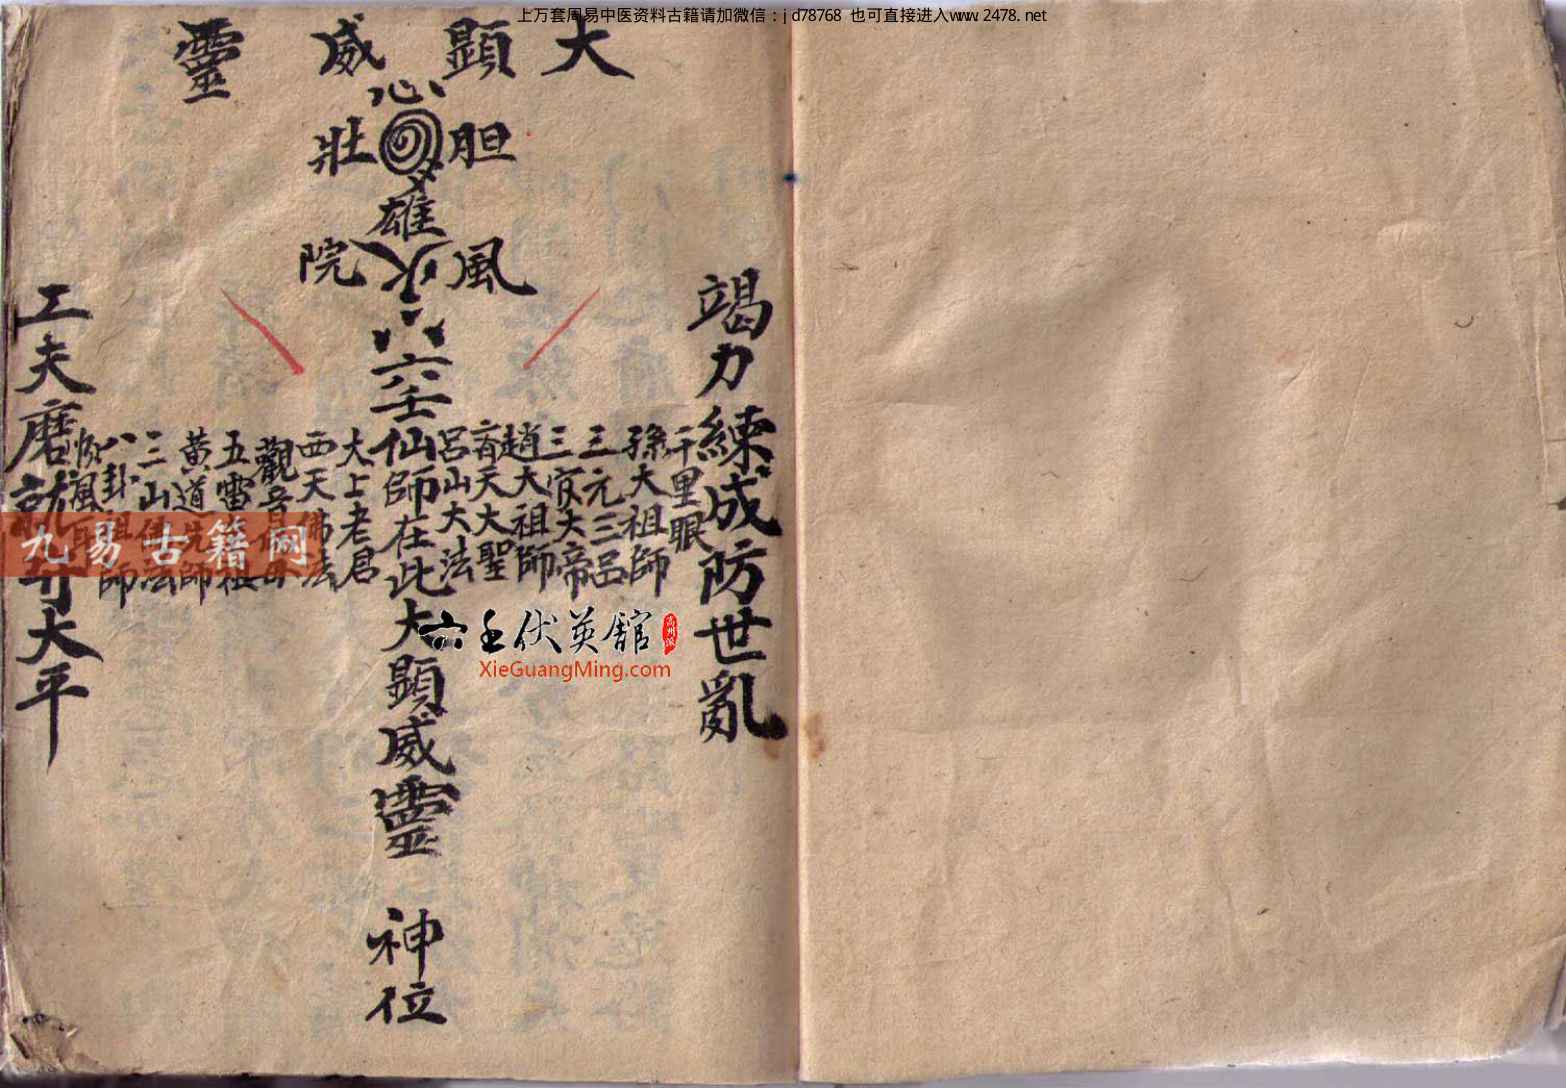 上万套周易中医资料古籍请加微信：jd78768 也可直接进入www.2478.net
大顯威靈
心
胆
壯
雄
風
火
院
竭力練成防世亂
千里眼
孫大祖師
三元三呂
三官大帝
趙大祖師
育天大聖
呂山大法
六壬仙師在此大顯威靈 神位
大上老君
西天佛法
觀音
五雷
黄道先師
三山
八卦祖師
順風耳
工夫磨就 大平
九易古籍网
六壬伏英館
XieGuangMing.com